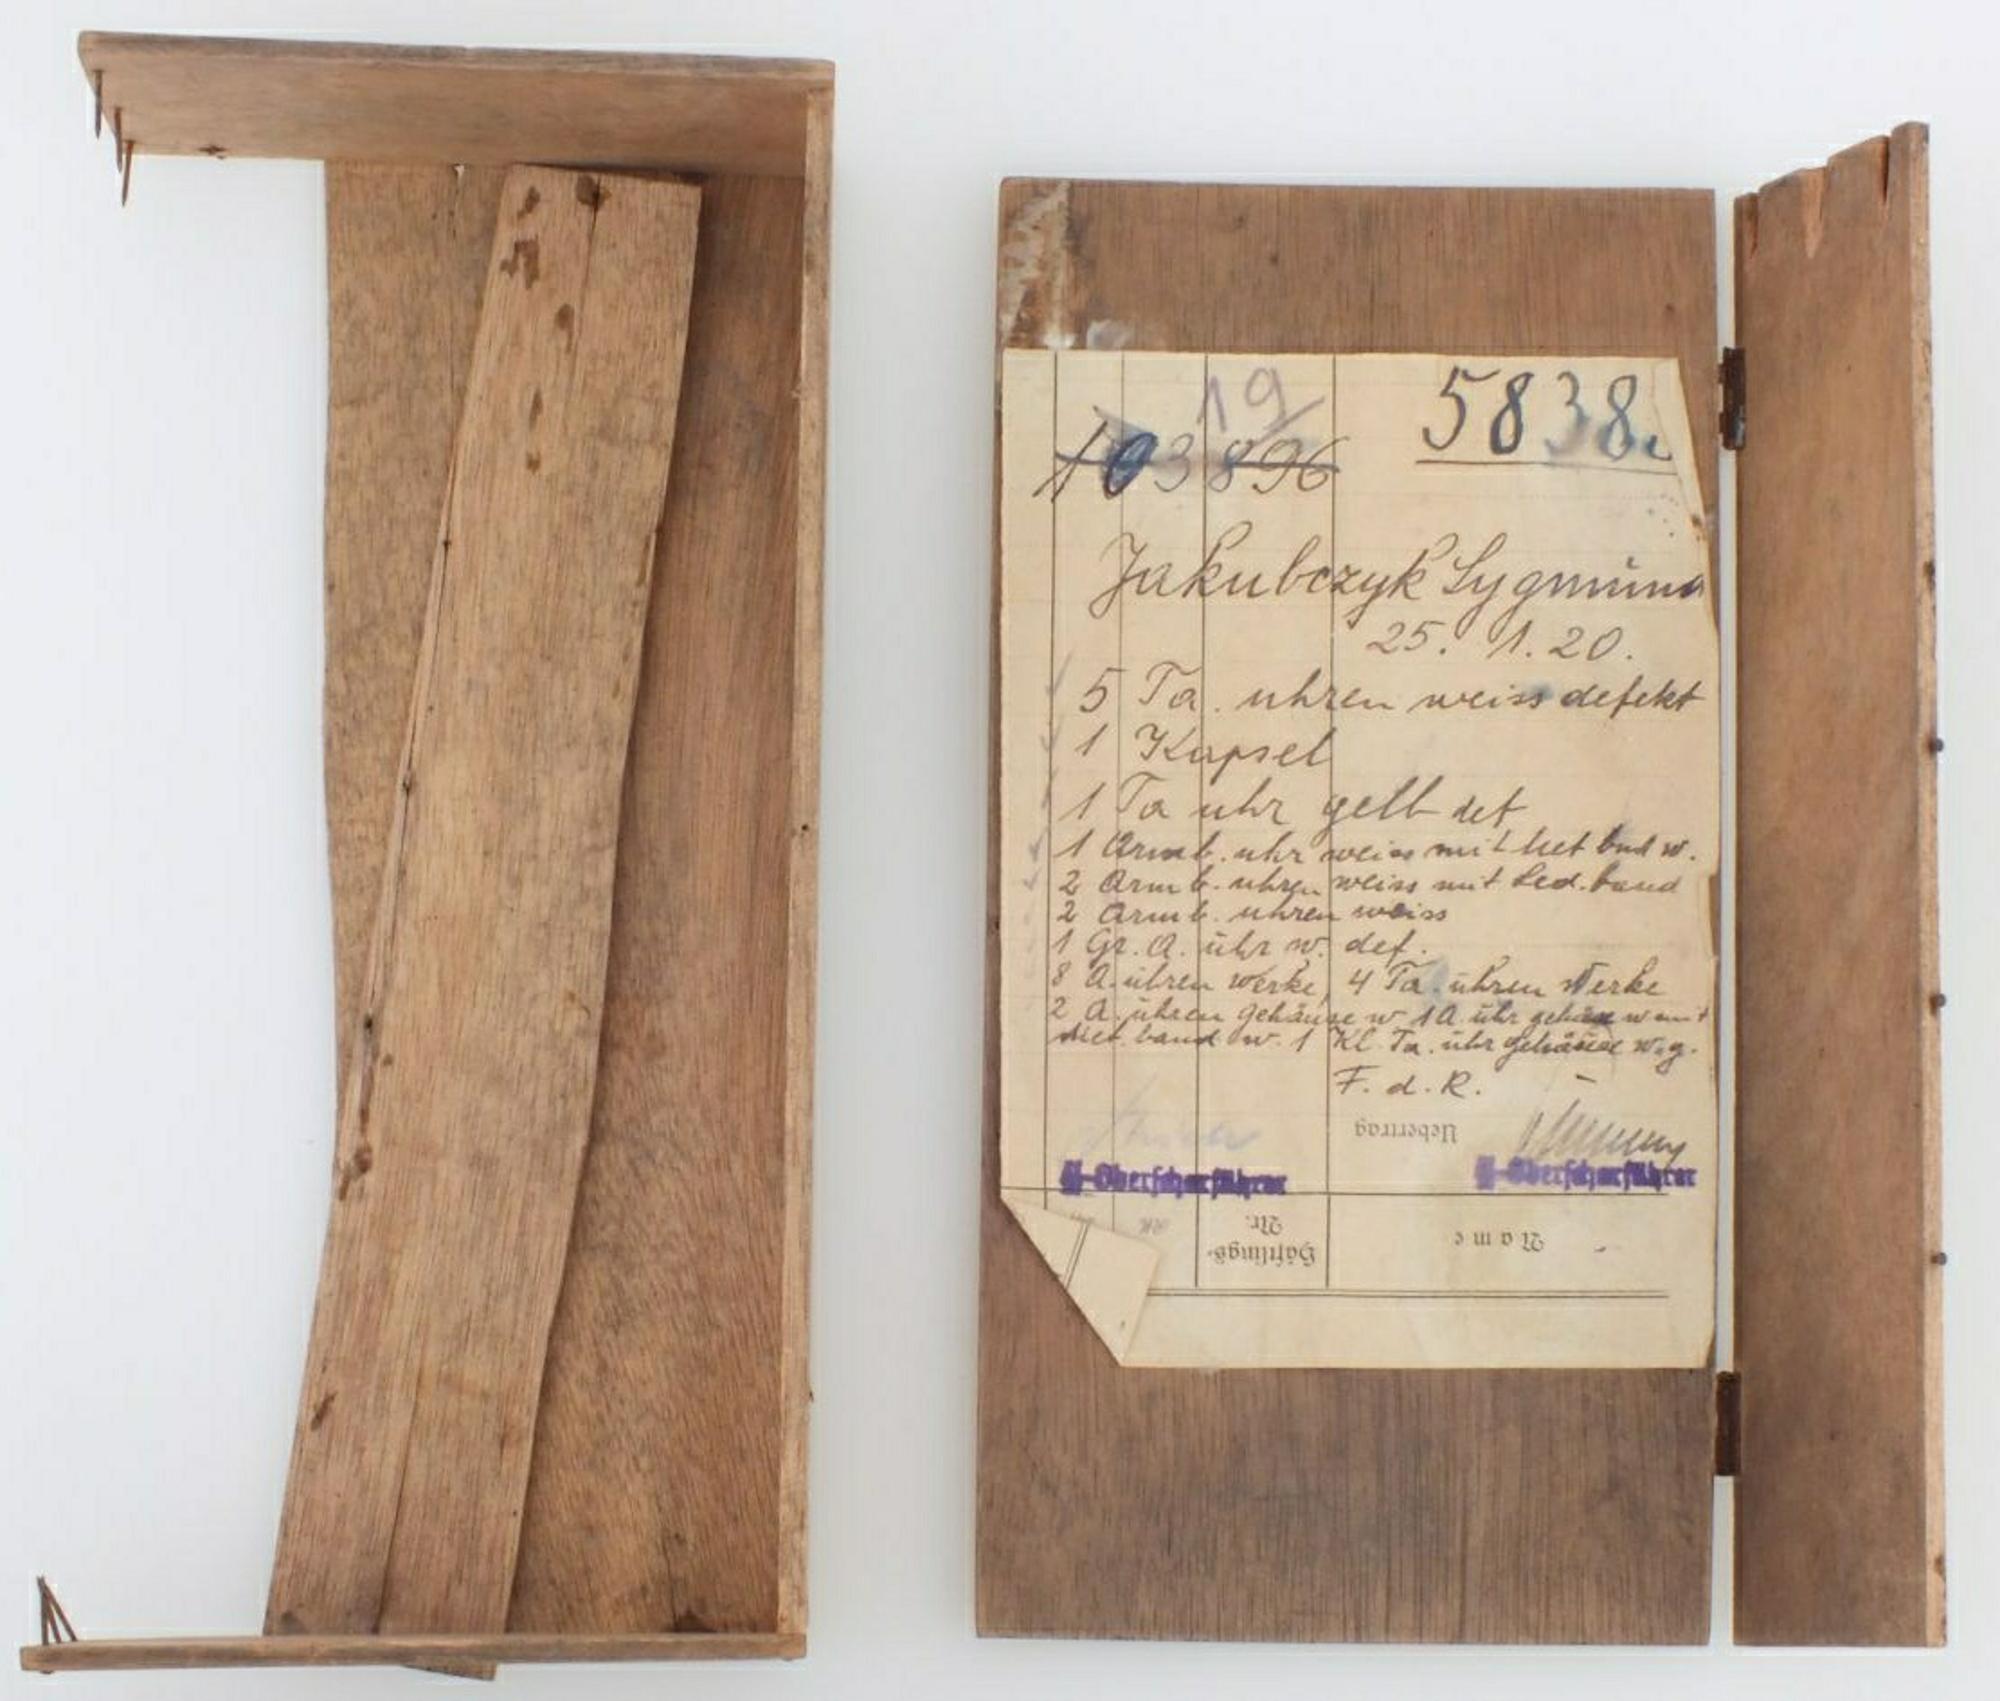 19
103896
5838
Jakubczyk Sygmund
25. 1. 20.
5 Ta. uhren weiss defekt
1 Kapsel
1 Ta uhr gelb def
1 Armb. uhr weiss mit Met band w.
2 Armb. uhren weiss mit Led. band
2 Armb. uhren weiss
1 Gr. A. uhr w. def.
8 A. uhren Werke, 4 Ta. uhren Werke
2 A. uhren gehäuse w 1 A. uhr gehäuse w mit
Met. band w. 1 Kl. Ta. uhr gehäuse w. g.
F. d. R.
Uebertrag
ᛋᛋ-Oberscharführer ᛋᛋ-Oberscharführer
Häftlings-
Nr.
Name